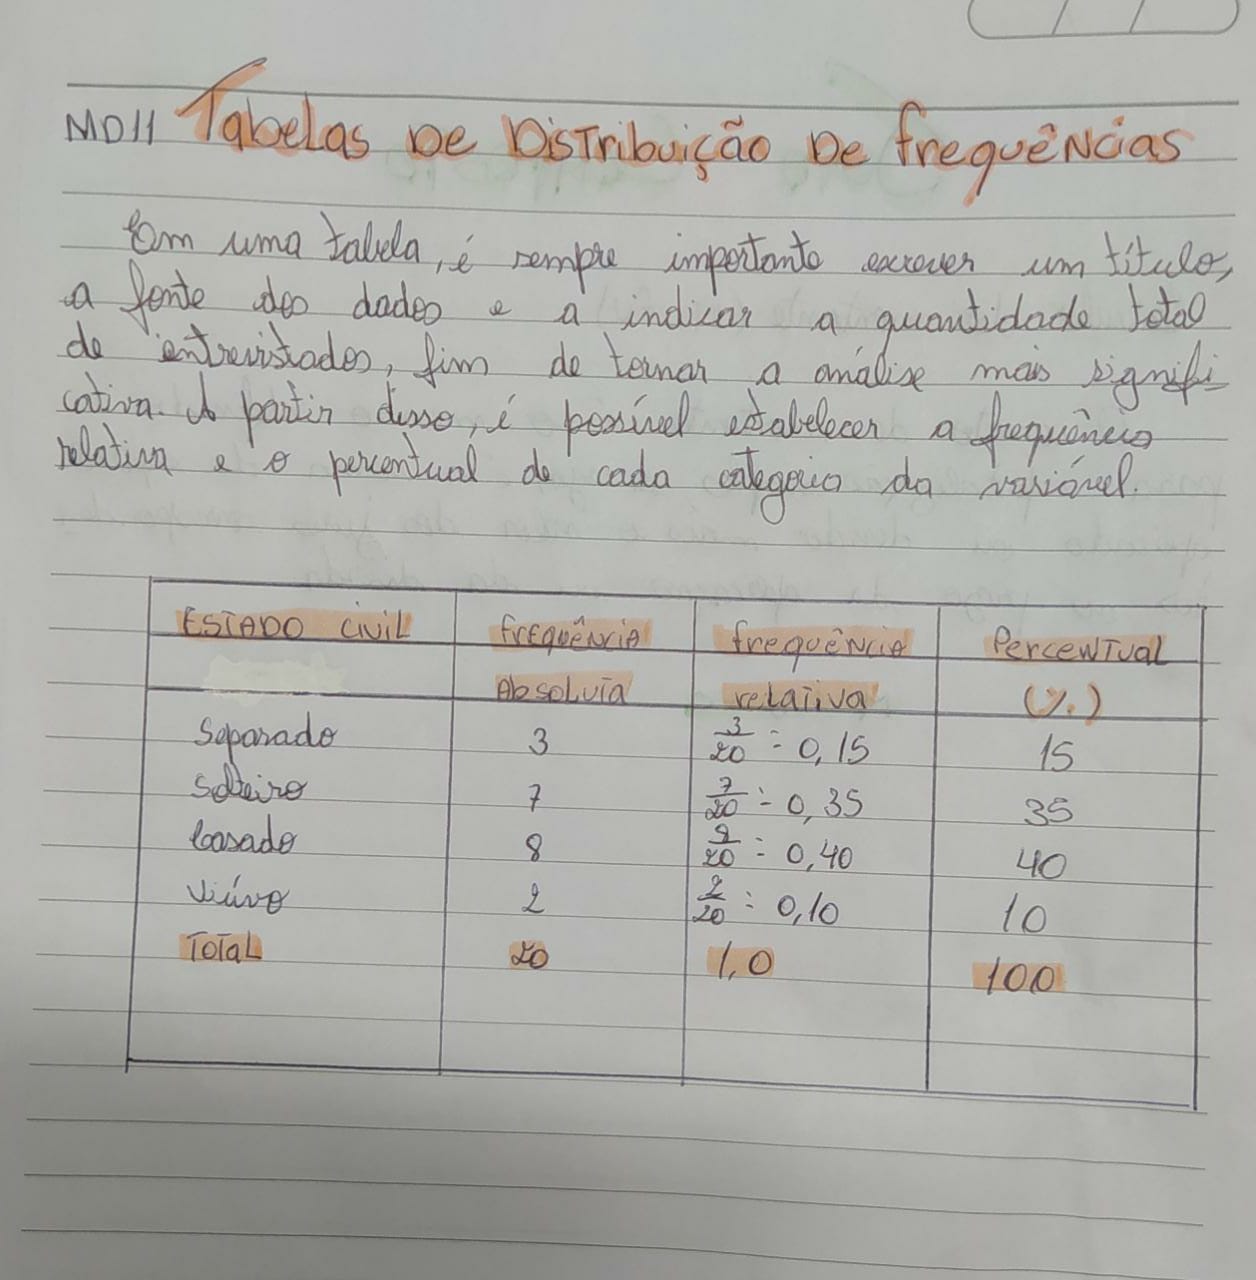 MD11 Tabelas De Distribuição De frequências
Em uma tabela, é sempre importante escrever um título,
a fonte dos dados e a indicar a quantidade total
de entrevistados, fim de tornar a análise mais signifi
cativa. A partir disso, é possível estabelecer a frequência
relativa e o percentual de cada categoria da variável.
ESTADO CIVIL frequência frequência Percentual
Absoluta relativa (%)
Separado 3 3/20 = 0,15 15
Solteiro 7 7/20 = 0,35 35
Casado 8 /20 = 0,40 40
Viúvo 2 2/20 = 0,10 10
Total 20 1,0 100